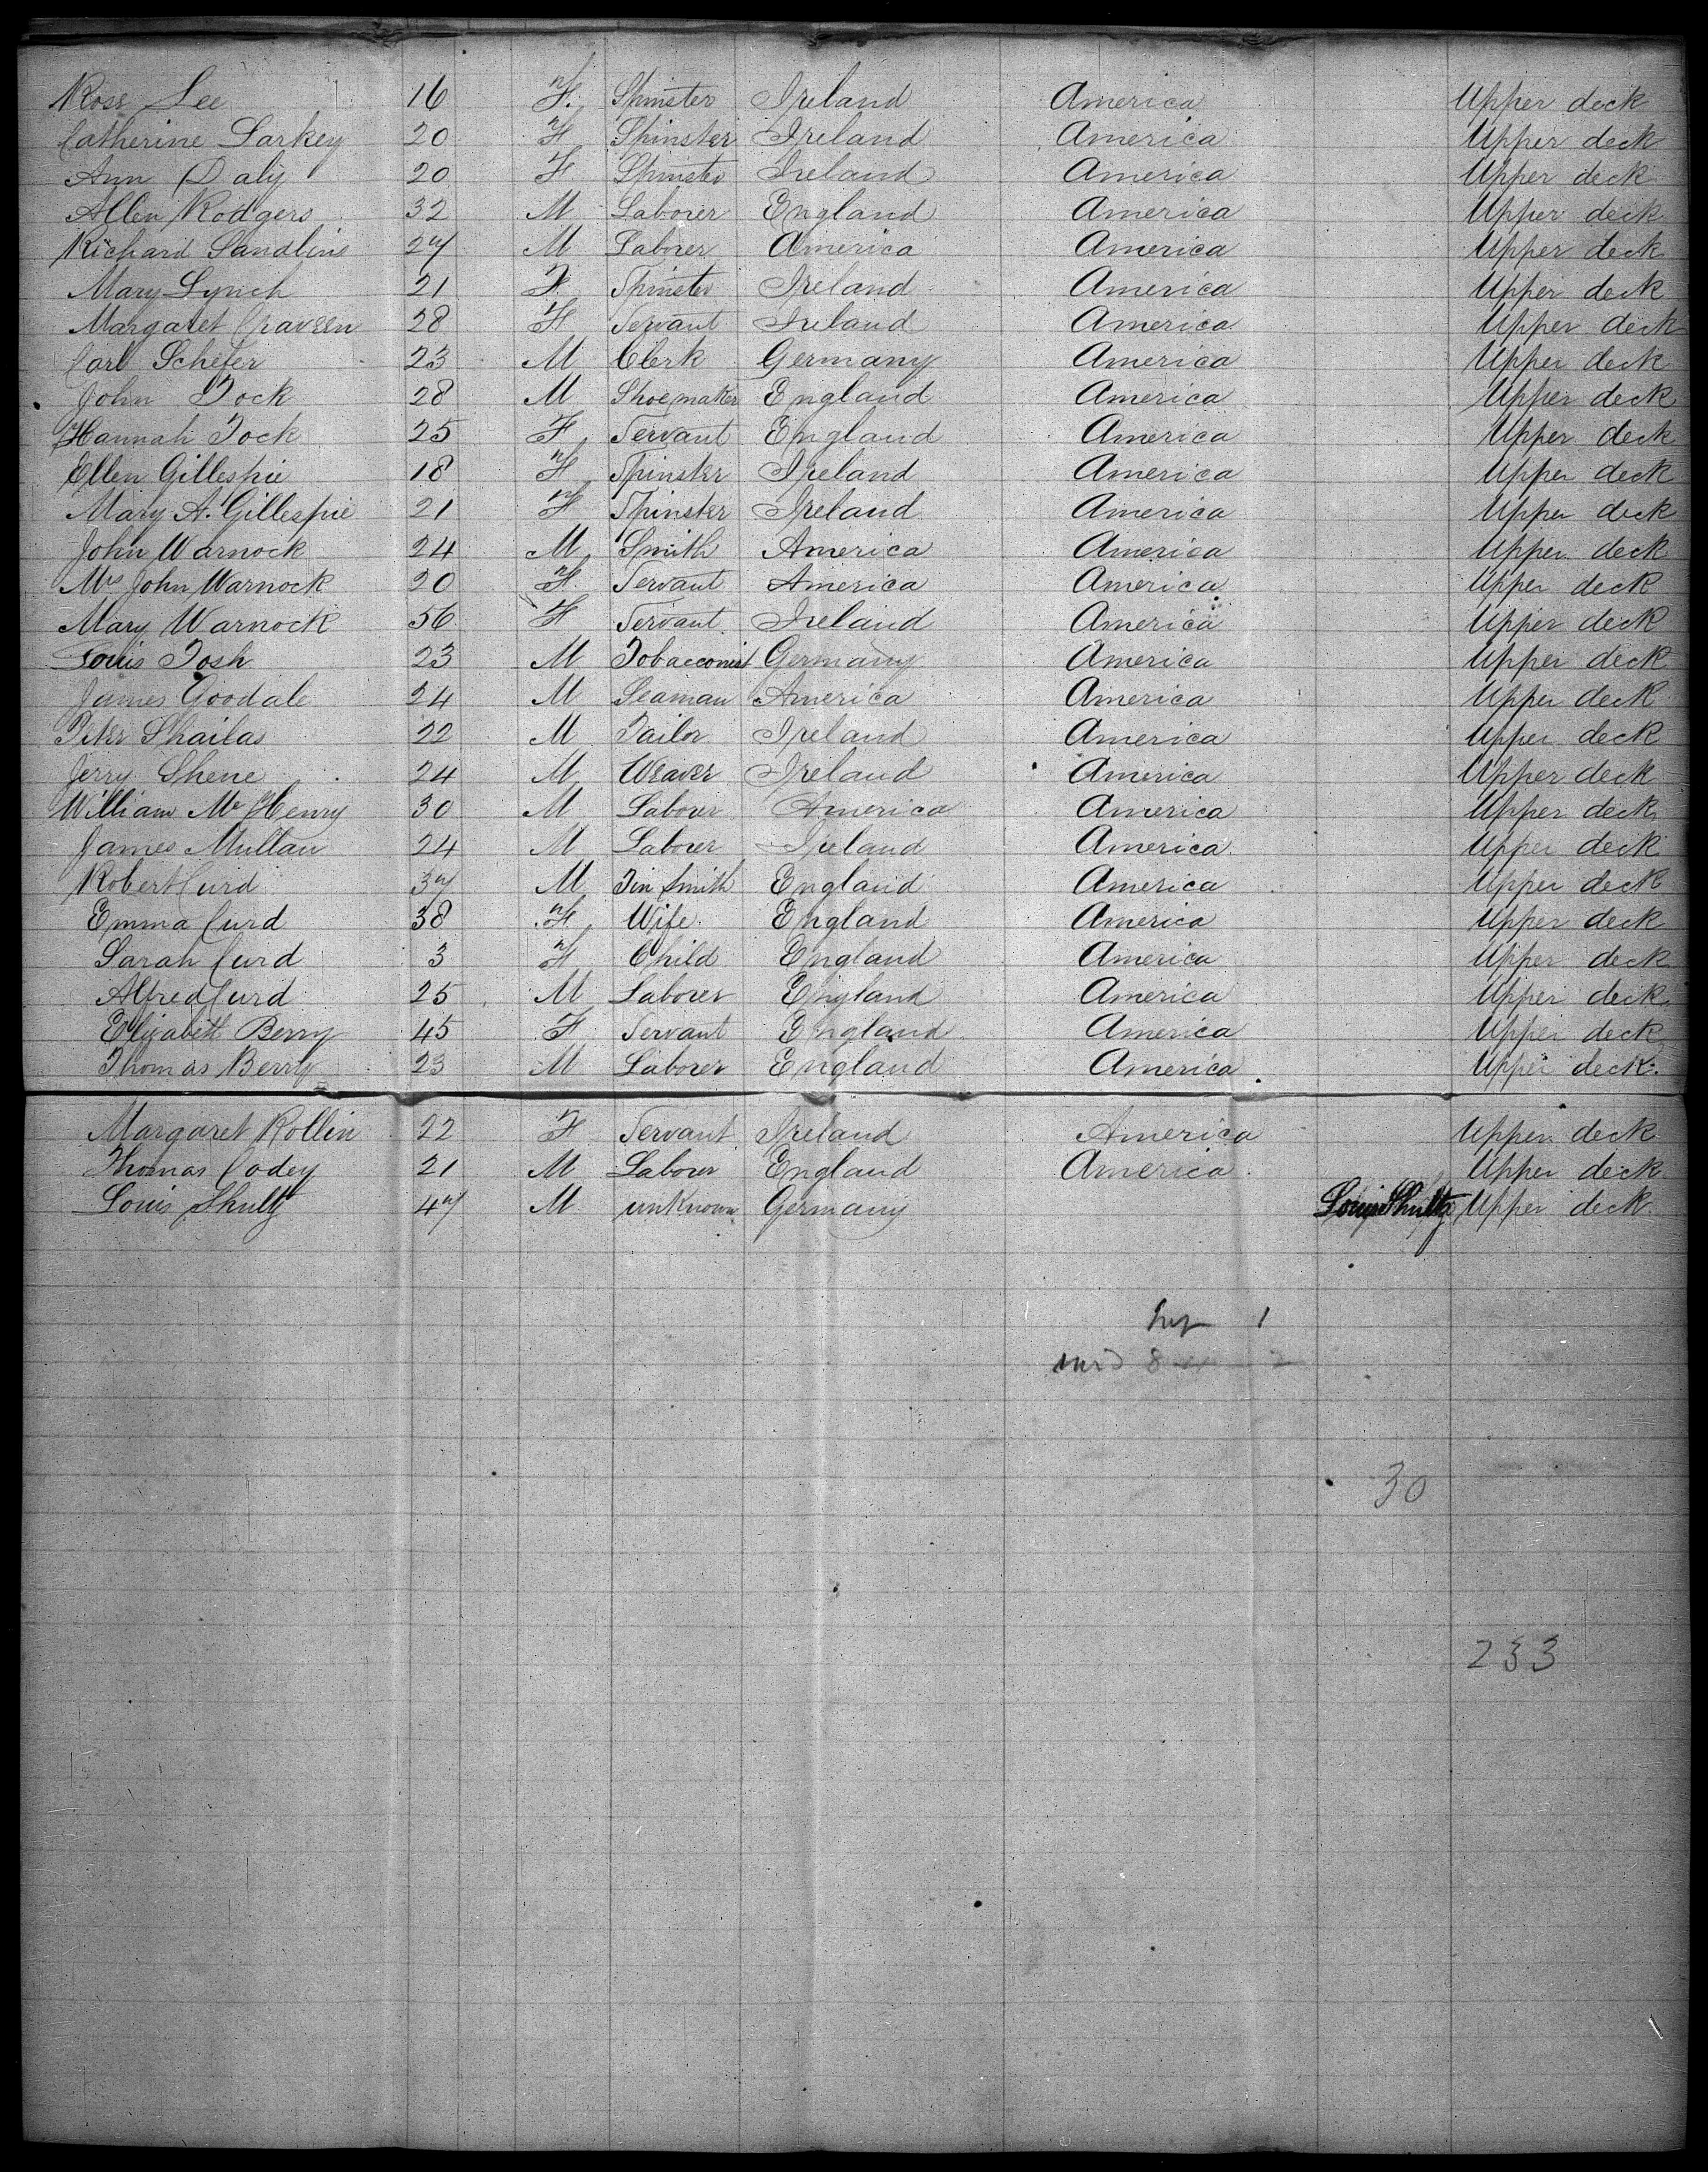 Rose Lee 16 F. Spinster Ireland America Upper deck
Catherine Larkey 20 F Spinster Ireland America Upper deck
Ann Daly 20 F Spinster Ireland America Upper deck
Allen Rodgers 32 M Laborer England America Upper deck
Richard Sandlins 27 M Laborer America America Upper deck
Mary Lynch 21 F Spinster Ireland America Upper deck
Margaret Craveen 28 F Servant Ireland America Upper deck
Carl Schefer 23 M Clerk Germany America Upper deck
John Tock 28 M Shoemaker England America Upper deck
Hannah Tock 25 F Servant England America Upper deck
Ellen Gillespie 18 F Spinster Ireland America Upper deck
Mary A. Gillespie 21 F Spinster Ireland America Upper deck
John Warnock 24 M Smith America America Upper deck
Mrs John Warnock 20 F Servant America America Upper deck
Mary Warnock 56 F Servant Ireland America Upper deck
Louis Tosh 23 M Tobacconist Germany America Upper deck
James Goodale 24 M Seaman America America Upper deck
Peter Shailas 22 M Tailor Ireland America Upper deck
Jerry Shene 24 M Weaver Ireland America Upper deck
William McHenry 30 M Laborer America America Upper deck
James Mullan 24 M Laborer Ireland America Upper deck
Robert Curd 37 M Tin Smith England America Upper deck
Emma Curd 38 F Wife England America Upper deck
Sarah Curd 3 F Child England America Upper deck
Alfred Curd 25 M Laborer England America Upper deck
Elizabeth Berry 45 F Servant England America Upper deck
Thomas Berry 23 M Laborer England America Upper deck.
Margaret Rollin 22 F Servant Ireland America Upper deck
Thomas Codey 21 M Laborer England America Upper deck
Louis Shultz 47 M unknown Germany Louis Shultz Upper deck
1
30
233